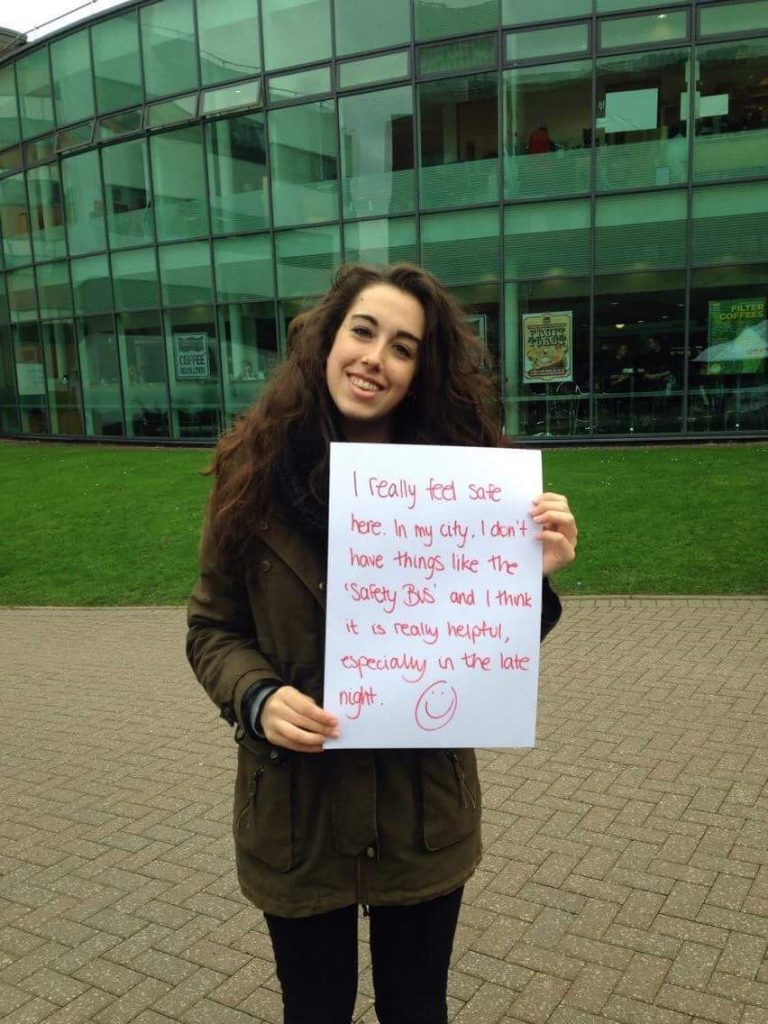 I really feel safe
here. In my city, I don't
have things like the
'Safety Bus' and I think
it is really helpful,
especially in the late
night.
COFFEE
REVOLUTION
FRUIT
TOAST
FILTER
COFFEES